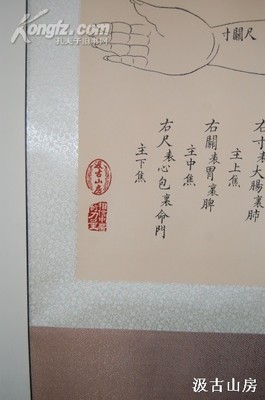 Kongfz.com
孔夫子旧书网
尺關寸
右寸表大腸裏肺
主上焦
右關表胃裏脾
主中焦
右尺表心包裏命門
主下焦
汲古山房
汲古山房